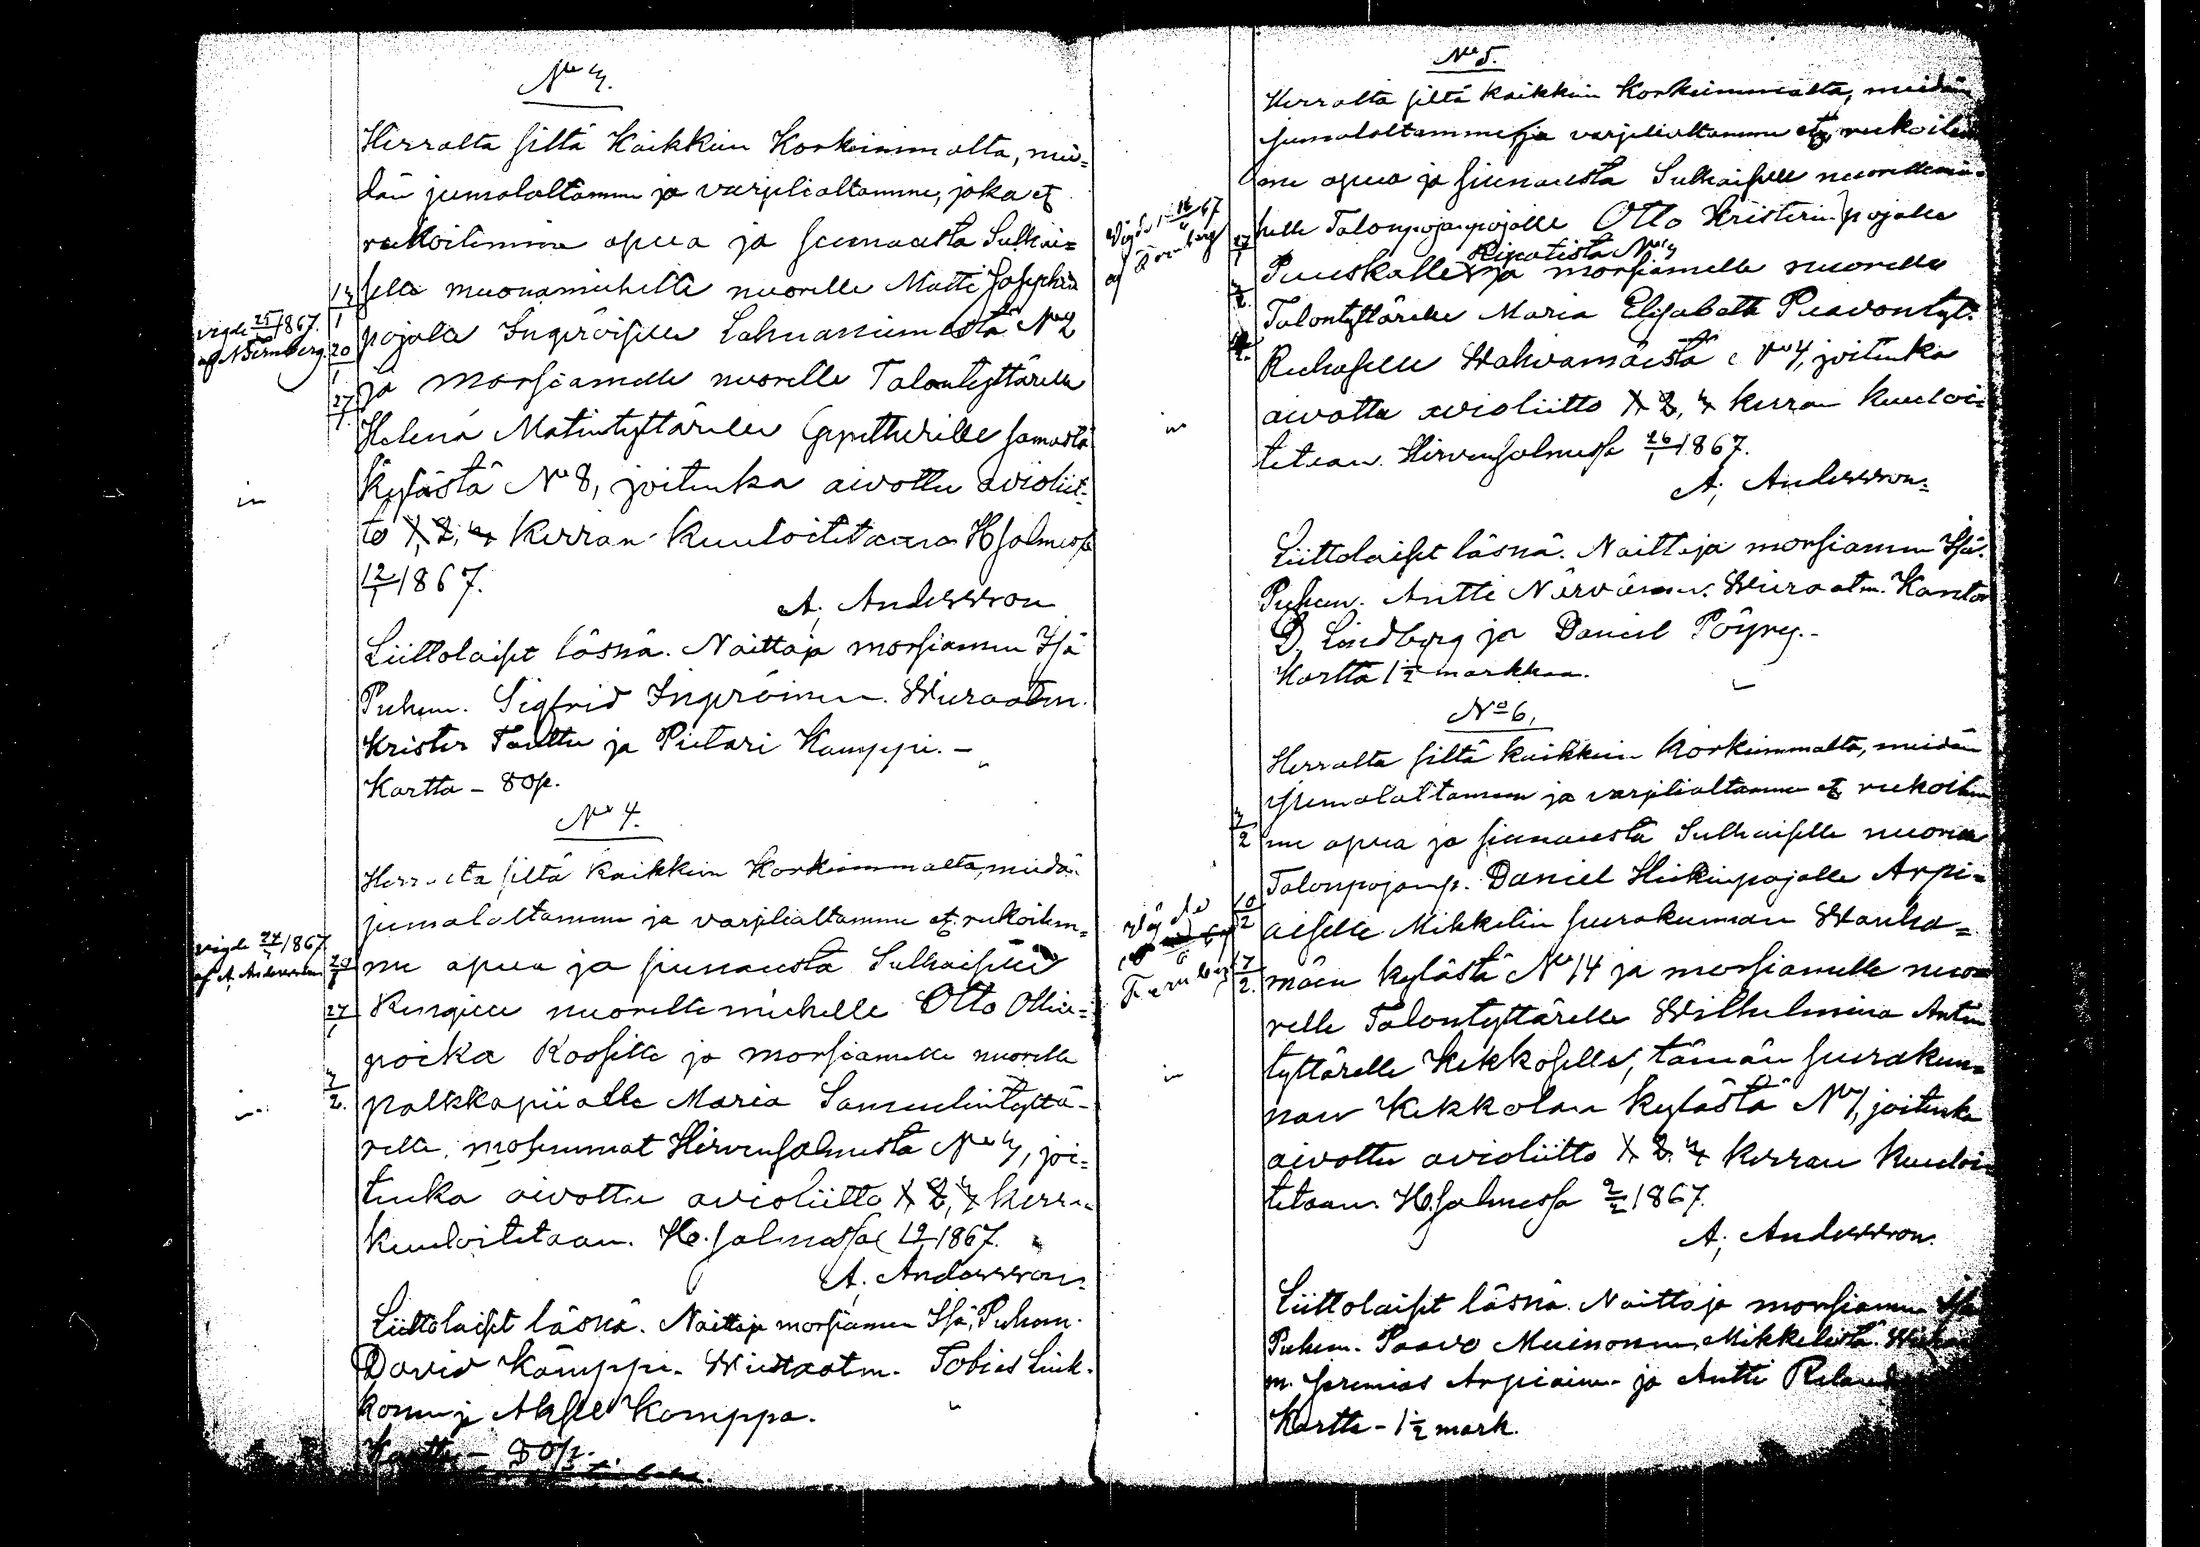 No 3.
Herralta siltä Kaikkein Korkeimmalta, mei=
dän jumalaltamme ja varjelialtamme, joka et
rukoilemme apua ja siunausta Sulhai=
selle muonamiehelle nuorelle Matti Josephin
pojalle Ingeröiselle Lahnaniemestä No 2
ja morsiamelle nuorelle Talontyttärelle
Helena Matintyttärelle samasta
Kylästä No 8, joitenka aivottu avioliit=
to 1, 2, 3 kerran kuuloitetaan Hsalmessa
12/1 1867.
A; Andersson
Liittolaiset läsnä. Naittaja morsiamen Isä
Puhem. Sigfrid Ingeröinen. Wieraatm.
Krister Tanttu ja Pietari Kamppi. -
Kartta - 80p.
vigde 25/1 1867.
af N Fernberg.
13/1
20/1
27/1
in
No 4.
Herralta siltä kaikkein Korkeimmalta, meidän
jumalaltamme ja varjelialtamme et. rukoilem=
me apua ja siunausta Sulhaiselle
Rengille nuorellemiehelle Otto Ollin=
poika Kooselle ja morsiamelle nuorelle
palkkapiialle Maria Samuelintyttä-
relle, molemmat Hirvensalmesta No 3, joi=
tenka aivottu avioliitto 1, 2, 3 kerran
kuuloitetaan. H.salmessa 19/1 1867.
A; Andersson.
Liittolaiset läsnä. Naittaja morsiamen Isä, Puhem.
David Kämppi. Wieraatm. Tobias Link-
konen ja Aksel Kamppa.
Kartta - 80p.
vigde 24/3 1867
af A. Andersson
20/1
27/1
3/2.
in
No 5.
Herralta siltä kaikkein Korkeimmalta, meidän
jumalaltamme ja varjelialtamme et, rukoilem
me apua ja siunausta Sulhaiselle nuorellemie=
helle Talonpojanpojalle Otto Kristerin pojalle
Puuskalle Ripatista No 3 ja morsiamelle nuorelle
Talontyttärelle Maria Elisabeth Paavontyt.
Reehoselle Wahvamäestä No 4, joitenka
aivottu avioliitto 1, 2, 3 kerran kuuloi=
tetaan. Hirvensalmessa 26/1 1867.
A; Andersson.
Liittolaiset läsnä. Naittaja morsiamen Isä.
Puhem. Antti Närvänen. Wieraatm. Kantor
D. Lindberg ja Daniel Pöyry.-
Kartta 1 1/2 markkaa.
af Fernberg
27/1
3/2
in
No 6.
Herralta siltä kaikkein Korkeimmalta, meidän
jumalaltamme ja varjelialtamme et, rukoilem
me apua ja siunausta Sulhaiselle nuorelle
Talonpojanp. Daniel Heikinpojalle Arpi=
aiselle Mikkelin seurakunnan Wanha=
mäen kylästä No 14 ja morsiamelle nuo=
relle Talontyttärelle Wilhelmina Antin
tyttärelle Kekkoselle, tämän seurakun=
nan Kekkolan kylästä No 1, joitenka
aivottu avioliitto 1, 2, 3 kerran kuuloi=
tetaan. H.salmessa 2/2 1867.
A; Andersson.
Liittolaiset läsnä. Naittaja morsiamen Isä
Puhem. Paavo Muinonen, Mikkelistä.
m. Jeremias Arpiainen ja Antti
Kartta - 1 1/2 mark.
3/2
10/2
17/2.
Fernberg
in